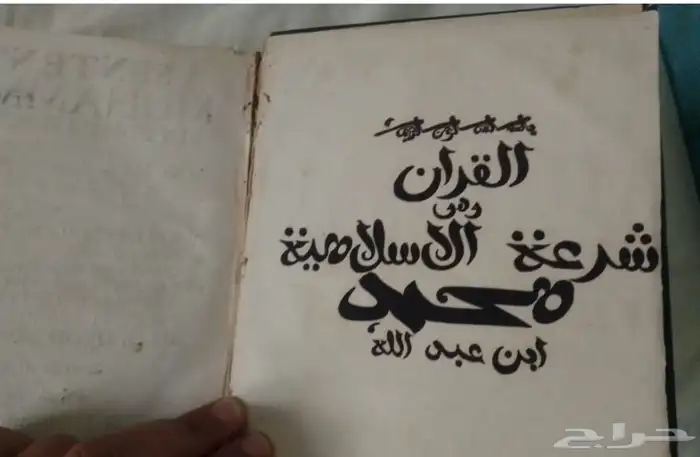 القران
وهى
شرعة الاسلامية
محمد
ابن عبد الله
حراج